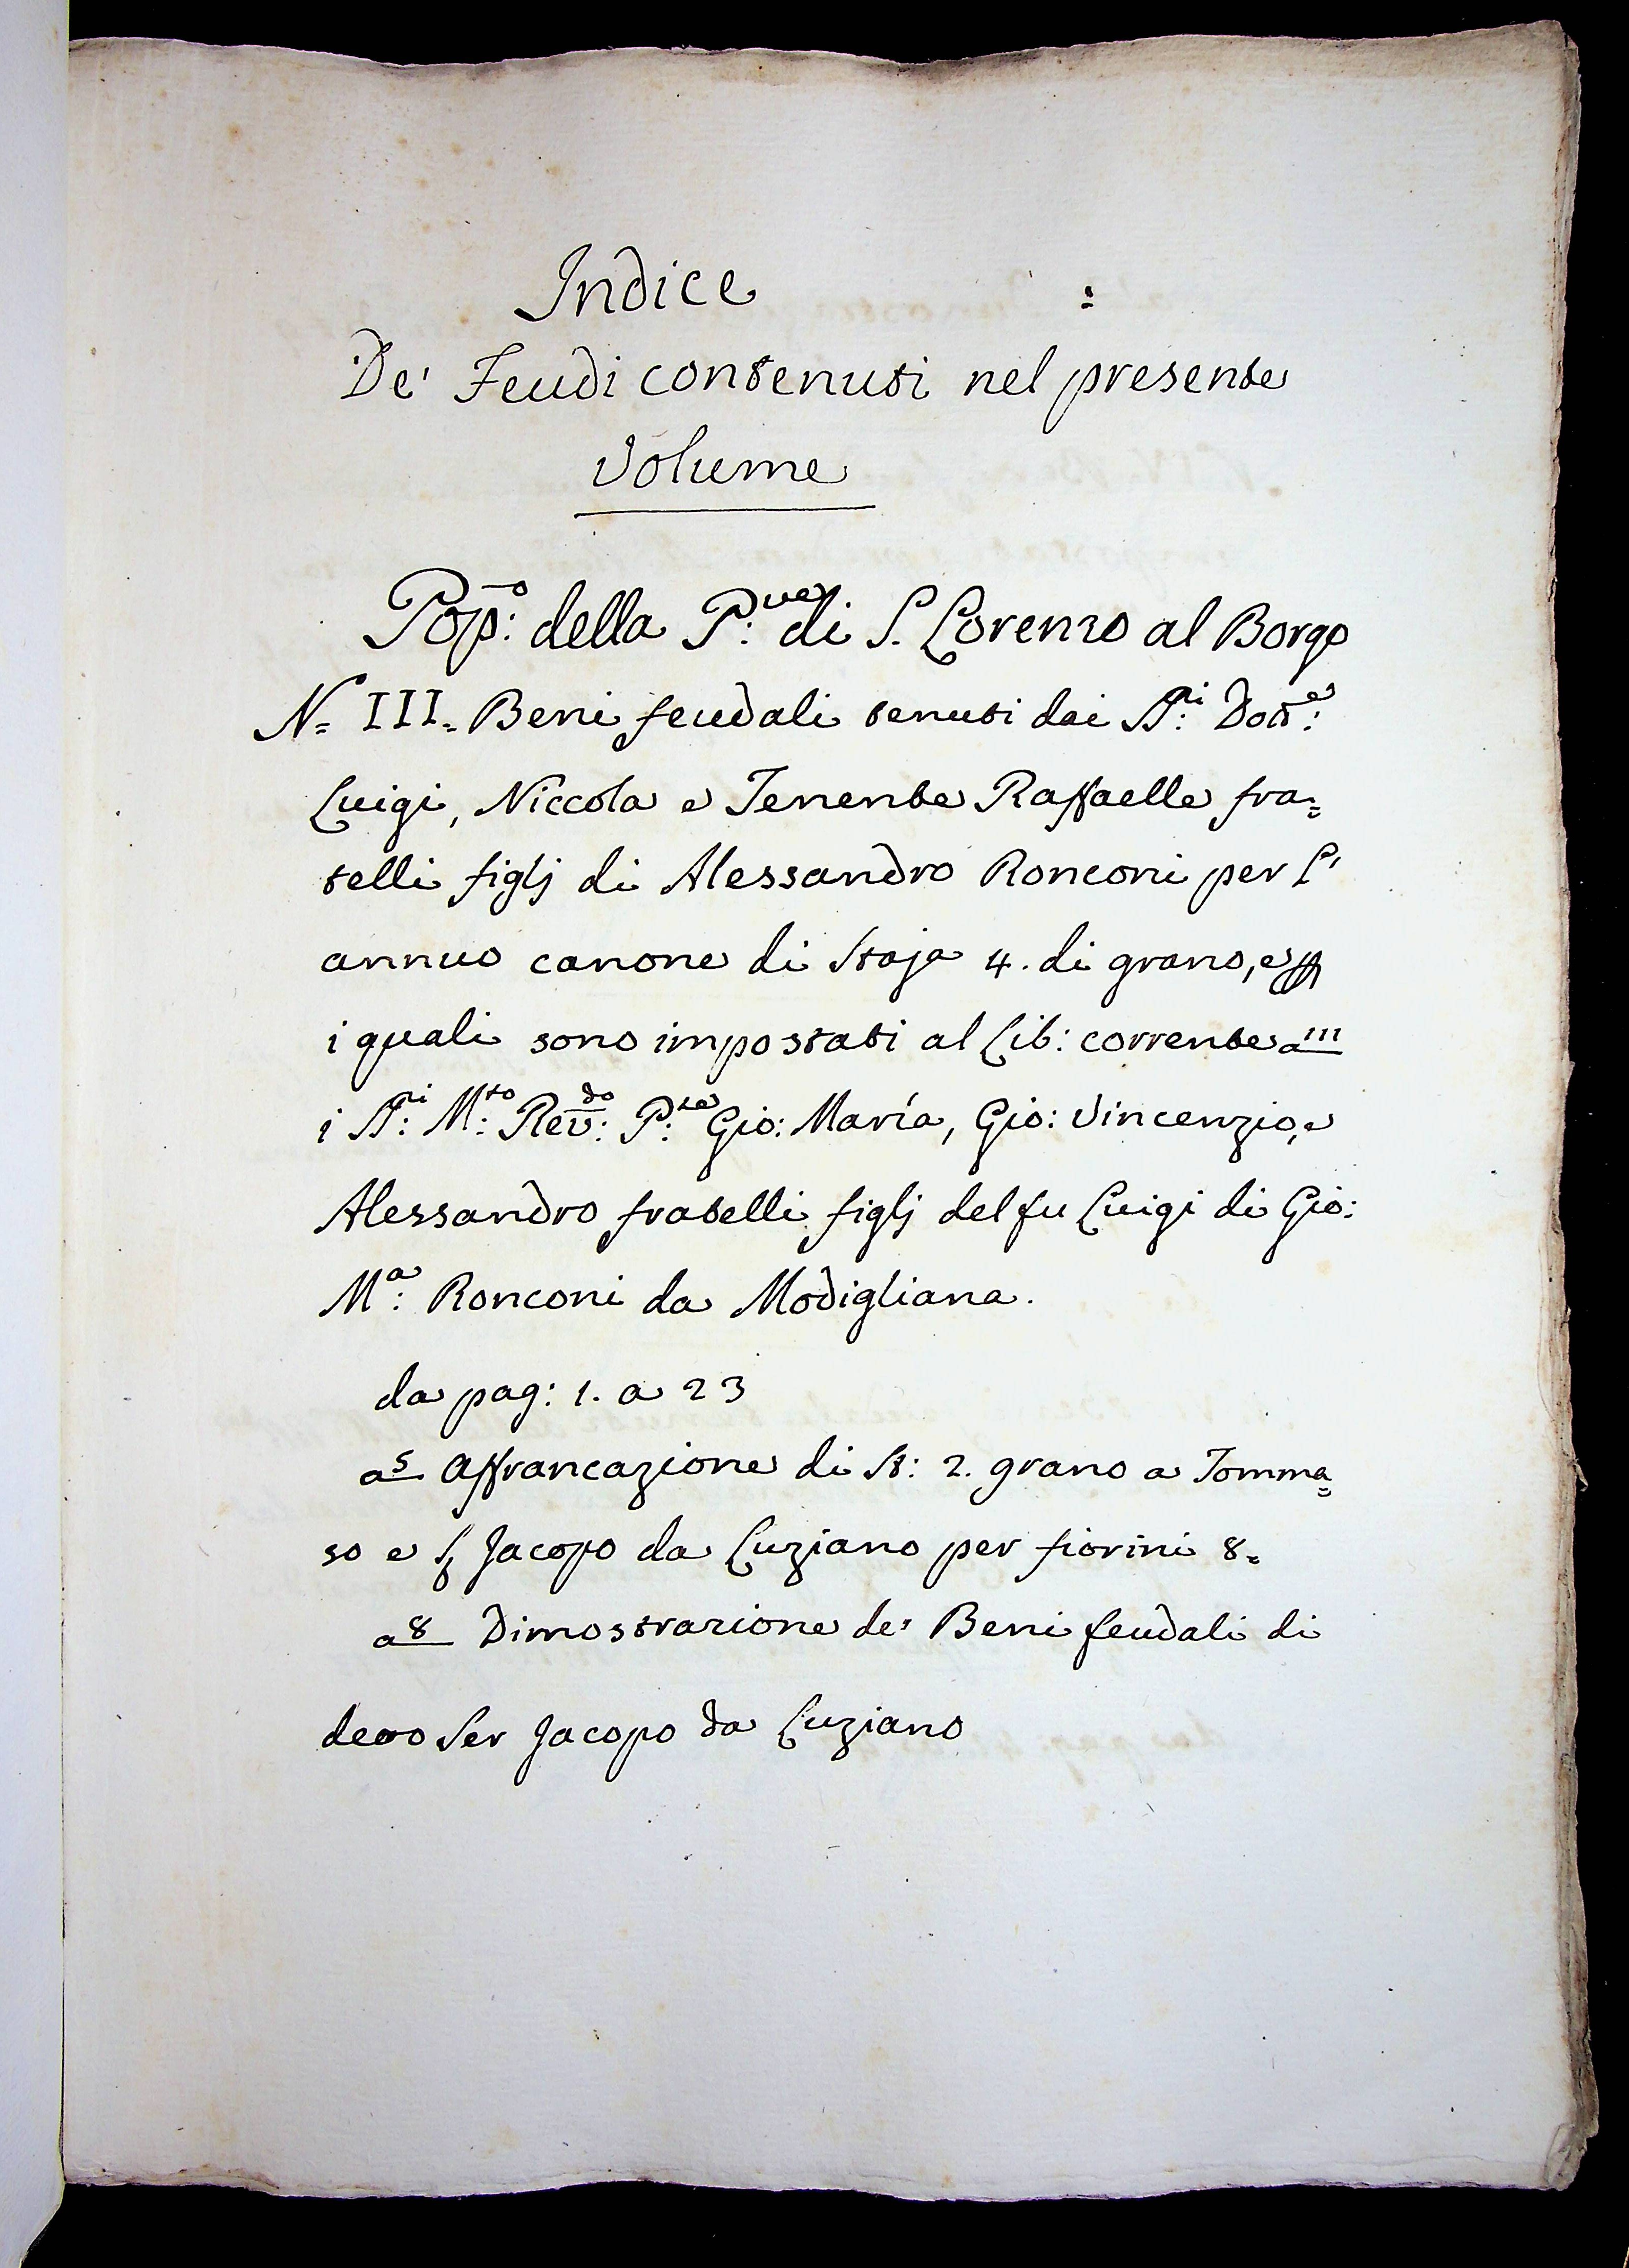 Indice
De' Feudi contenuti nel presente
Volume
Pop.º: della P.ve: di S. Lorenzo al Borgo
N= III= Beni feudali tenuti dai SS.ri: Dott.e:
Luigi, Niccola e Tenente Raffaelle fra=
telli figlj di Alessandro Ronconi per l'
annuo canone di Staja 4. di grano, e
i quali sono impostati al Lib: corrente a 111
i SS.ri: M.to: Rev.do: P.te: Gio: Maria, Gio: Vincenzio, e
Alessandro fratelli figlj del fu Luigi di Gio:
M.a: Ronconi da Modigliana.
da pag: 1. a 23
a 5 Affrancazione di St: 2. grano a Tomma=
so e S. Jacopo da Luziano per fiorini 8=
a 8 Dimostrazione de' Beni feudali di
detto Ser Jacopo da Luziano